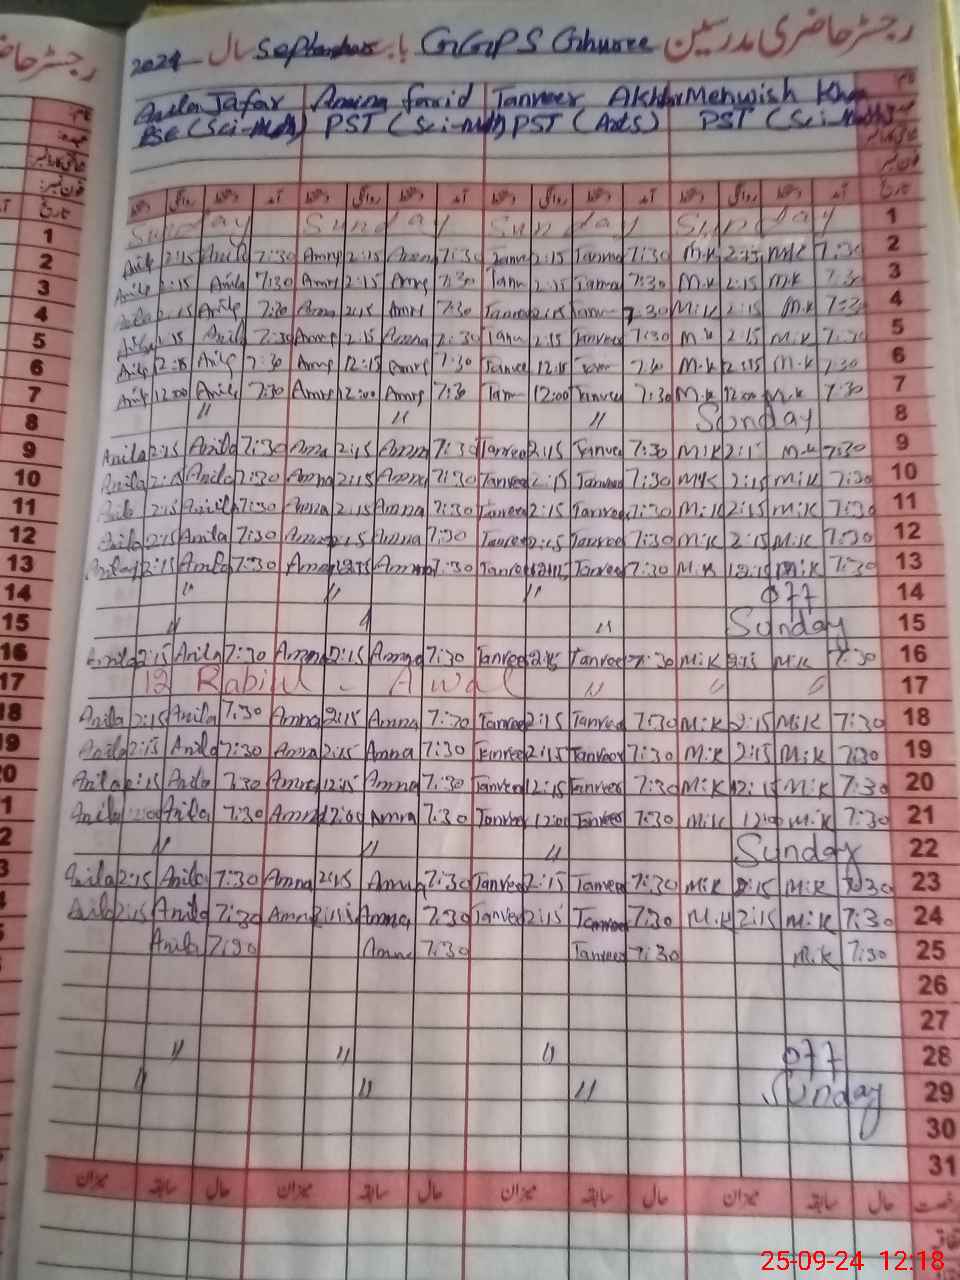 رجسٹر حاضری مدرسین GGPS Ghuree بابت September سال 2024
Anila Jafar Amina farid Tanveer Akhtar Mehwish Khan نام
PSE (Sci-Math) PST (Sci-Math) PST (Arts) PST (Sci-Math)
تاریخ آمد دستخط روانگی دستخط آمد دستخط روانگی دستخط آمد دستخط روانگی دستخط آمد دستخط روانگی دستخط
Sunday Sunday Sunday Sunday 1
2:15 Anila 7:30 2:15 7:30 2:15 7:30 M.K 2:15 M.K 7:30 2
Anila 2:15 Anila 7:30 2:15 7:30 2:15 7:30 M.K 2:15 M.K 7:30 3
2:15 7:30 2:15 7:30 2:15 7:30 M.K 2:15 M.K 7:30 4
2:15 Anila 7:30 2:15 Amna 7:30 2:15 Tanveer 7:30 M.K 2:15 M.K 7:30 5
12:15 7:30 12:15 7:30 Tanveer 12:15 7:30 M.K 12:15 M.K 7:30 6
12:00 7:30 12:00 7:30 12:00 Tanveer 7:30 M.K 12:00 M.K 7:30 7
〃 〃 〃 Sunday 8
Anila 2:15 Anila 7:30 Amna 2:15 Amna 7:30 Tanveer 2:15 Tanveer 7:30 M.K 2:15 M.K 7:30 9
Anila 2:15 Anila 7:30 Amna 2:15 Amna 7:30 Tanveer 2:15 Tanveer 7:30 M.K 2:15 M.K 7:30 10
2:15 Anila 7:30 Amna 2:15 Amna 7:30 Tanveer 2:15 Tanveer 7:30 M.K 2:15 M.K 7:30 11
Anila 2:15 Anila 7:30 Amna 2:15 Amna 7:30 Tanveer 2:15 Tanveer 7:30 M.K 2:15 M.K 7:30 12
Anila 12:15 Anila 7:30 Amna 12:15 Amna 7:30 Tanveer 12:15 Tanveer 7:30 M.K 12:15 M.K 7:30 13
〃 〃 〃 off 14
〃 〃 〃 Sunday 15
Anila 2:15 Anila 7:30 Amna 2:15 Amna 7:30 Tanveer 2:15 Tanveer 7:30 M.K 2:15 M.K 7:30 16
12 Rabiul - Awal 〃 〃 〃 17
Anila 2:15 Anila 7:30 Amna 2:15 Amna 7:30 Tanveer 2:15 Tanveer 7:30 M.K 2:15 M.K 7:30 18
Anila 2:15 Anila 7:30 Amna 2:15 Amna 7:30 Tanveer 2:15 Tanveer 7:30 M.K 2:15 M.K 7:30 19
Anila 12:15 Anila 7:30 Amna 12:15 Amna 7:30 Tanveer 12:15 Tanveer 7:30 M.K 12:15 M.K 7:30 20
Anila 12:00 Anila 7:30 Amna 12:00 Amna 7:30 Tanveer 12:00 Tanveer 7:30 M.K 12:00 M.K 7:30 21
〃 〃 〃 Sunday 22
Anila 2:15 Anila 7:30 Amna 2:15 Amna 7:30 Tanveer 2:15 Tanveer 7:30 M.K 2:15 M.K 7:30 23
Anila 2:15 Anila 7:30 Amna 2:15 Amna 7:30 Tanveer 2:15 Tanveer 7:30 M.K 2:15 M.K 7:30 24
Anila 7:30 Amna 7:30 Tanveer 7:30 M.K 7:30 25
26
27
〃 〃 〃 off 28
〃 〃 〃 Sunday 29
30
31
حال سابقہ میزان حال سابقہ میزان حال سابقہ میزان حال سابقہ میزان
25-09-24 12:18